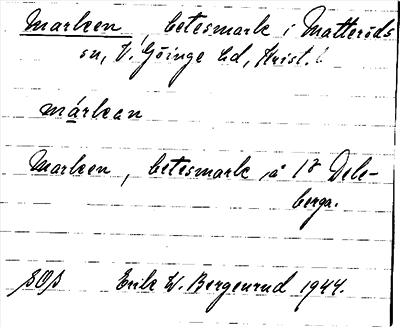 Marken, betesmark i Matteröds
sn, V. Göinge hd, Krist. l
márkan
Marken, betesmark å 1⁸ Dele-
berga.
SOS Erik W. Bergenrud 1944.